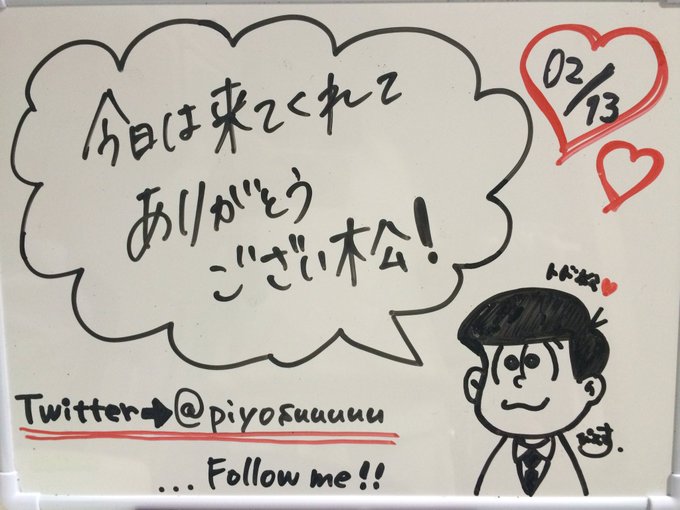 今日は来てくれて
ありがとう
ござい松!
02/13
トド松
Twitter➡@piyosuuuuu
...Follow me!!